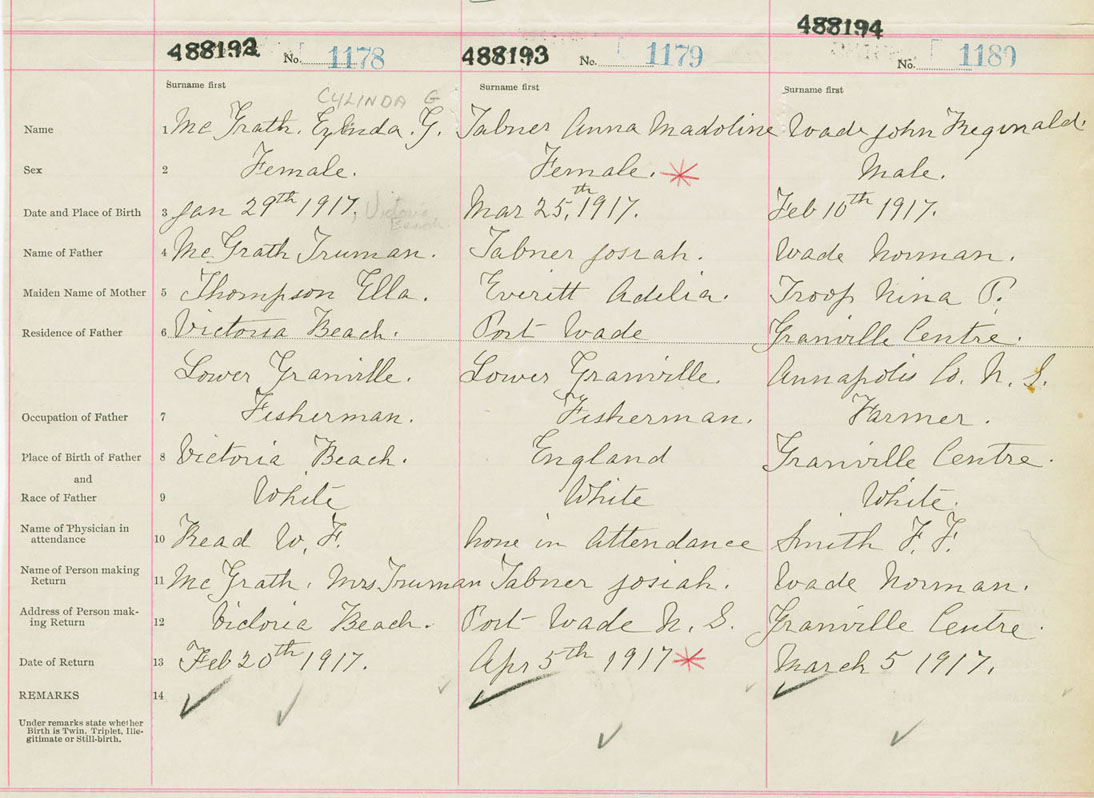 488192 No. 1178 488193 No. 1179 488194 No. 1180
Surname first Surname first Surname first
CYLINDA G
Name 1 Mc Grath. G. Tabner Anna Madoline Wade John Reginald.
Sex 2 Female. Female. Male.
Date and Place of Birth 3 Jan 29th 1917, Victoria Beach. Mar 25,th 1917. Feb 10th 1917.
Name of Father 4 Mc Grath Truman. Tabner Josiah. Wade Norman.
Maiden Name of Mother 5 Thompson Ella. Everitt Adelia. Troop Nina P.
Residence of Father 6 Victoria Beach. Port Wade Granville Centre.
Lower Granville. Lower Granville. Annapolis Co. N. S.
Occupation of Father 7 Fisherman. Fisherman. Farmer.
Place of Birth of Father 8 Victoria Beach. England Granville Centre.
and
Race of Father 9 White White White.
Name of Physician in
attendance 10 Read W. F. none in Attendance Smith F. F.
Name of Person making
Return 11 Mc Grath. Mrs Truman Tabner Josiah. Wade Norman.
Address of Person mak-
ing Return 12 Victoria Beach. Port Wade N. S. Granville Centre.
Date of Return 13 Feb 20th 1917. Apr 5th 1917 March 5 1917.
REMARKS 14
Under remarks state whether
Birth is Twin, Triplet, Ille-
gitimate or Still-birth.